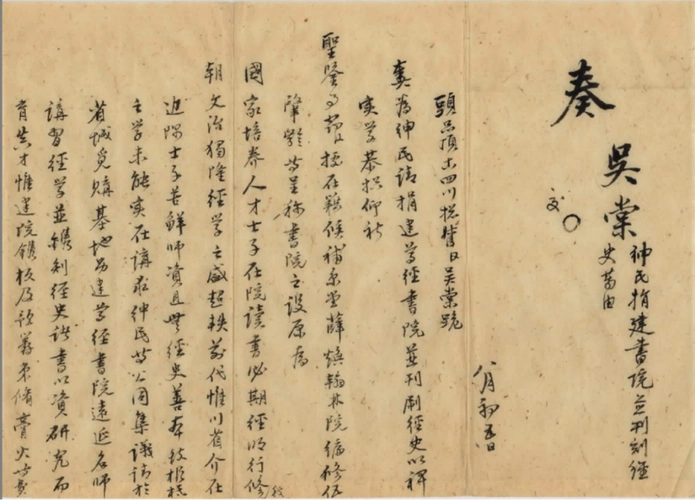 奏
吳棠
紳民捐建書院並刊刻經
史等由
八月初五日
頭品頂戴四川總督臣吳棠跪
奏為紳民請捐建尊經書院並刊刻經史以裨
實學恭摺仰祈
聖鑒事竊據在籍候補京堂薛煥翰林院編修伍
肇齡等呈稱書院之設原為
國家培養人才士子在院讀書必期經明行修我
朝文治獨隆經學之盛超軼前代惟川省介在
邊隅士子苦鮮師資且無經史善本致根柢
之學未能實在講求紳民等公同集議請於
省城覓購基地另建尊經書院遠延名師
講習經學並鐫刻經史諸書以資研究而
育真才惟建院鐫板及籌束脩膏火等費